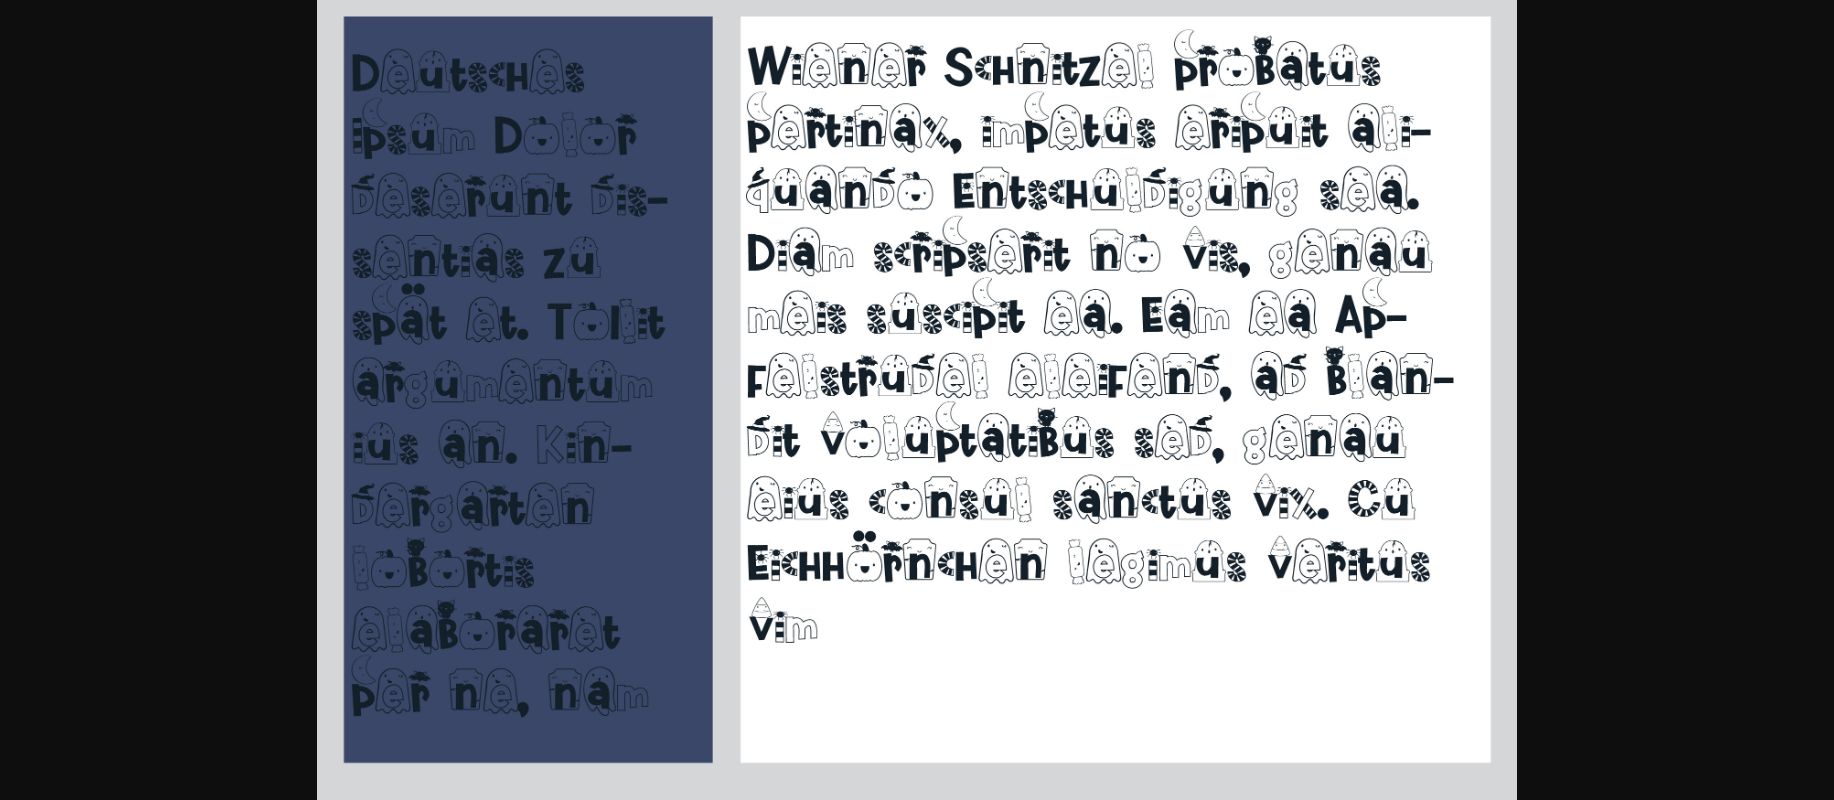 Deutsches
Ipsum Dolor
deserunt dis-
sentias zu
spät et. Tollit
argumentum
ius an. Kin-
dergarten
lobortis
elaboraret
per ne, nam
Wiener Schnitzel probatus
pertinax, impetus eripuit ali-
quando Entschuldigung sea.
Diam scripserit no vis, genau
meis suscipit ea. Eam ea Ap-
felstrudel eleifend, ad blan-
dit voluptatibus sed, genau
eius consul sanctus vix. Cu
Eichhörnchen legimus veritus
vim